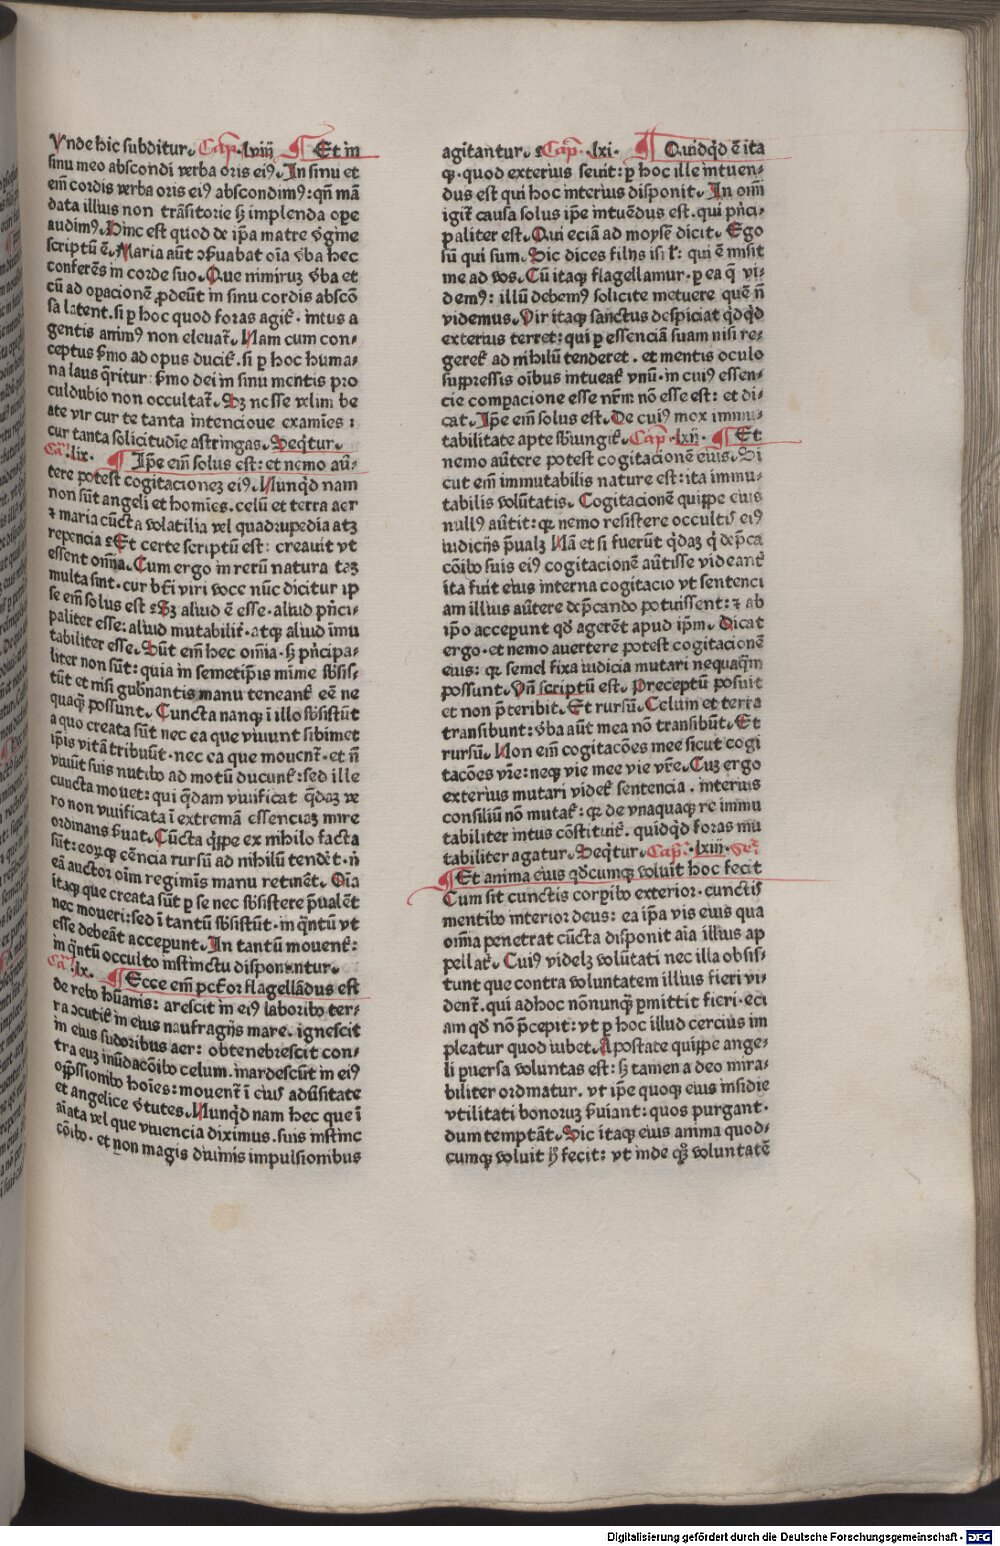 Vnde hic subditur. Cap. lviij ¶ Et in
sinu meo abscondi verba oris ei9. In sinu et
em̄ cordis verba oris ei9 abscondim9: qn̄ mā
data illius non trāsitorie sꝫ implenda ope
audim9. Hinc est quod de ip̄a matre v̄gine
scriptū ē. Maria aūt ↄseruabat oīa v̄ba hec
conferēs in corde suo. Que nimirum v̄ba et
cū ad oꝑacionē ꝓdeūt in sinu cordis abscō
sa latent. si ꝑ hoc quod foras agit᷑. intus a
gentis anim9 non eleuat᷑. Nam cum con-
ceptus ẜmo ad opus ducit᷑. si ꝑ hoc huma-
na laus q̄ritur: ẜmo dei in sinu mentis pro
culdubio non occultat᷑. Sꝫ nosse velim be
ate vir cur te tanta intencione examies:
cur tanta solicitudīe astringas. Seq̄tur.
Ca. lix. ¶ Ip̄e em̄ solus est: et nemo aū-
tere potest cogitacionez ei9. Nunqd nam
non sūt angeli et homīes. celū et terra aer
⁊ maria cūcta volatilia vel quadrupedia atqꝫ
repencia? Et certe scriptū est: creauit vt
essent om̄ia. Cum ergo in rerū natura taꝫ
multa sint. cur bt̄i viri voce nūc dicitur ip
se em̄ solus est? Sꝫ aliud ē esse. aliud pn̄ci-
paliter esse: aliud mutabilit᷑. atqꝫ aliud īmu
tabiliter esse. Sūt em̄ hec om̄ia. sꝫ pn̄cipa-
liter non sūt: quia in semetip̄is mīme sb̄sis-
tūt et nisi gub̄nantis manu teneant᷑ eē ne
quaqꝫ possunt. Cuncta nanqꝫ ī illo sb̄sistūt
a quo creata sūt nec ea que viuunt sibimet
ip̄is vitā tribuūt. nec ea que mouent᷑. et n̄
viuūt suis nutibꝫ ad motū ducunt᷑: sed ille
cuncta mouet: qui q̄dam viuificat q̄daꝫ ve
ro non viuificata ī extremā essenciaꝫ mire
ordinans ẜuat. Cūcta qͥppe ex nihilo facta
sūt: eoꝝqꝫ eēncia rursū ad nihilū tendēt. n̄
eā auctor oīm regiminis manu retinēt. Oīa
itaqꝫ que creata sūt ꝑ se nec sb̄sistere p̄ualēt
nec moueri: sed ī tantū sb̄sistūt. in qn̄tū vt
esse debeāt acceperunt. In tantū mouent᷑:
in qn̄tū occulto instinctu disponuntur.
Ca. lx. ¶ Ecce em̄ pct̄or flagellādus est
de rebꝫ hūanis: arescit in ei9 laboribꝫ ter-
ra ↄcutit᷑ in eius naufragijs mare. ignescit
in eius sudoribus aer: obtenebrescit con-
tra euꝫ inūdacōibꝫ celum. inardescūt in ei9
opp̄ssionibꝫ hoīes: mouent᷑ ī ei9 adūsitate
et angelice v̄tutes. Nunqd nam hec que ī
aīata vel que viuencia diximus. suis instinc
cōibꝫ. et non magis diuinis impulsionibus
agitantur? Cap. lxi. ¶ Quidqd ē ita
qꝫ. quod exterius seuit: ꝑ hoc ille intuen-
dus est qui hoc interius disponit. In om̄i
igit᷑ causa solus ip̄e intuēdus est. qui pn̄ci-
paliter est. Qui eciā ad moysē dicit. Ego
sū qui sum. Sic dices filijs isr̄l: qui ē misit
me ad vos. Cū itaqꝫ flagellamur. ꝑ ea q̄ vi-
dem9: illū debem9 solicite metuere quē n̄
videmus. Vir itaqꝫ sanctus despiciat qdqd
exterius terret: qui ꝑ essenciā suam nisi re-
geret᷑ ad nihilū tenderet. et mentis oculo
suppressis oībus intueat᷑ vnū. in cui9 essen-
cie comꝑacione esse nr̄m nō esse est: et di-
cat. Ip̄e em̄ solus est. De cui9 mox immu-
tabilitate apte sb̄iungit᷑. Cap. lxij. ¶ Et
nemo aūtere potest cogitacionē eius. Si
cut em̄ immutabilis nature est: ita immu-
tabilis volūtatis. Cogitacionē quippe eius
null9 aūtit: qꝛ nemo resistere occultis ei9
iudicijs p̄ualꝫ Nā et si fuerūt qdaꝫ q̄ dep̄ca
cōibꝫ suis ei9 cogitacionē aūtisse videant᷑
ita fuit eius interna cogitacio vt sentenci
am illius aūtere dep̄cando potuissent: ⁊ ab
ip̄o acceperunt qd̄ agerēt apud ip̄m. Dicat
ergo. et nemo auertere potest cogitacionē
eius: qꝛ semel fixa iudicia mutari nequaqm̄
possunt. Vn̄ scriptū est. Preceptū posuit
et non p̄teribit. Et rursū. Celum et terra
transibunt: v̄ba aūt mea nō transibūt. Et
rursū. Non em̄ cogitacōes mee sicut cogi
tacōes vr̄e: neqꝫ vie mee vie vr̄e. Cuꝫ ergo
exterius mutari videt᷑ sentencia. interius
consiliū nō mutat᷑: qꝛ de vnaquaqꝫ re immu
tabiliter intus cōstituit᷑. quidqd foras mu
tabiliter agatur. Seq̄tur. Cap. lxiij.
¶ Et anima eius qd̄cumqꝫ voluit hoc fecit
Cum sit cunctis corꝑibꝫ exterior. cunctis
mentibꝫ interior deus: ea ip̄a vis eius qua
om̄ia penetrat cūcta disponit aīa illius ap
pellat᷑. Cui9 videlꝫ volūtati nec illa obsis-
tunt que contra voluntatem illius fieri vi-
dent᷑. qui adhoc nōnunqꝫ ꝑmittit fieri. eci
am qd̄ nō p̄cepit: vt ꝑ hoc illud cercius im
pleatur quod iubet. Apostate quippe ange-
li ꝑuersa voluntas est: sꝫ tamen a deo mira-
biliter ordinatur. vt ip̄e quoqꝫ eius insidie
vtilitati bonorum ẜuiant: quos purgant.
dum temptāt. Sic itaqꝫ eius anima quod-
cumqꝫ voluit hͦ fecit: vt inde qꝫ voluntatē
Digitalisierung gefördert durch die Deutsche Forschungsgemeinschaft - DFG